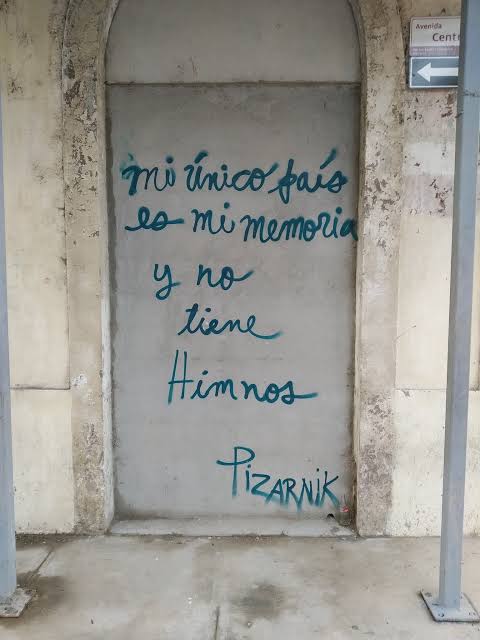 Avenida
Centr
mi único país
es mi memoria
y no
tiene
Himnos
PIZARNIK